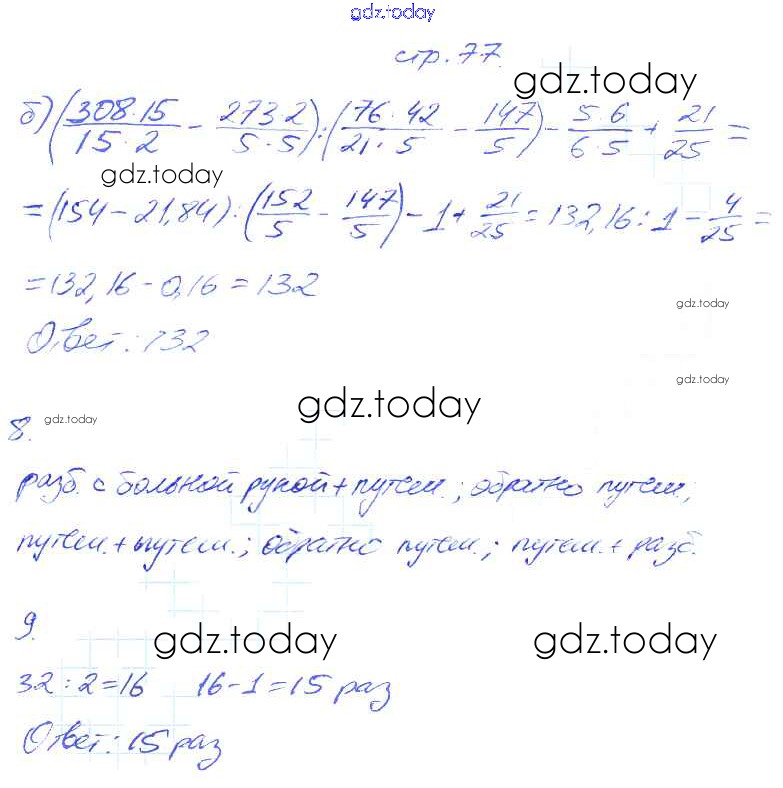 gdz.today
стр. 77.
gdz.today
б) (308·15/15·2 − 273·2/5·5) : (76·42/21·5 − 147/5) − 5·6/6·5 + 21/25 =
gdz.today
= (154 − 21,84) : (152/5 − 147/5) − 1 + 21/25 = 132,16 : 1 − 4/25 =
= 132,16 − 0,16 = 132
gdz.today
Ответ: 132
gdz.today
gdz.today
8. gdz.today
разб. с больной рукой + путеш.; обратно путеш.;
путеш. + путеш.; обратно путеш.; путеш. + разб.
9.
gdz.today gdz.today
32 : 2 = 16 16 − 1 = 15 раз
Ответ: 15 раз